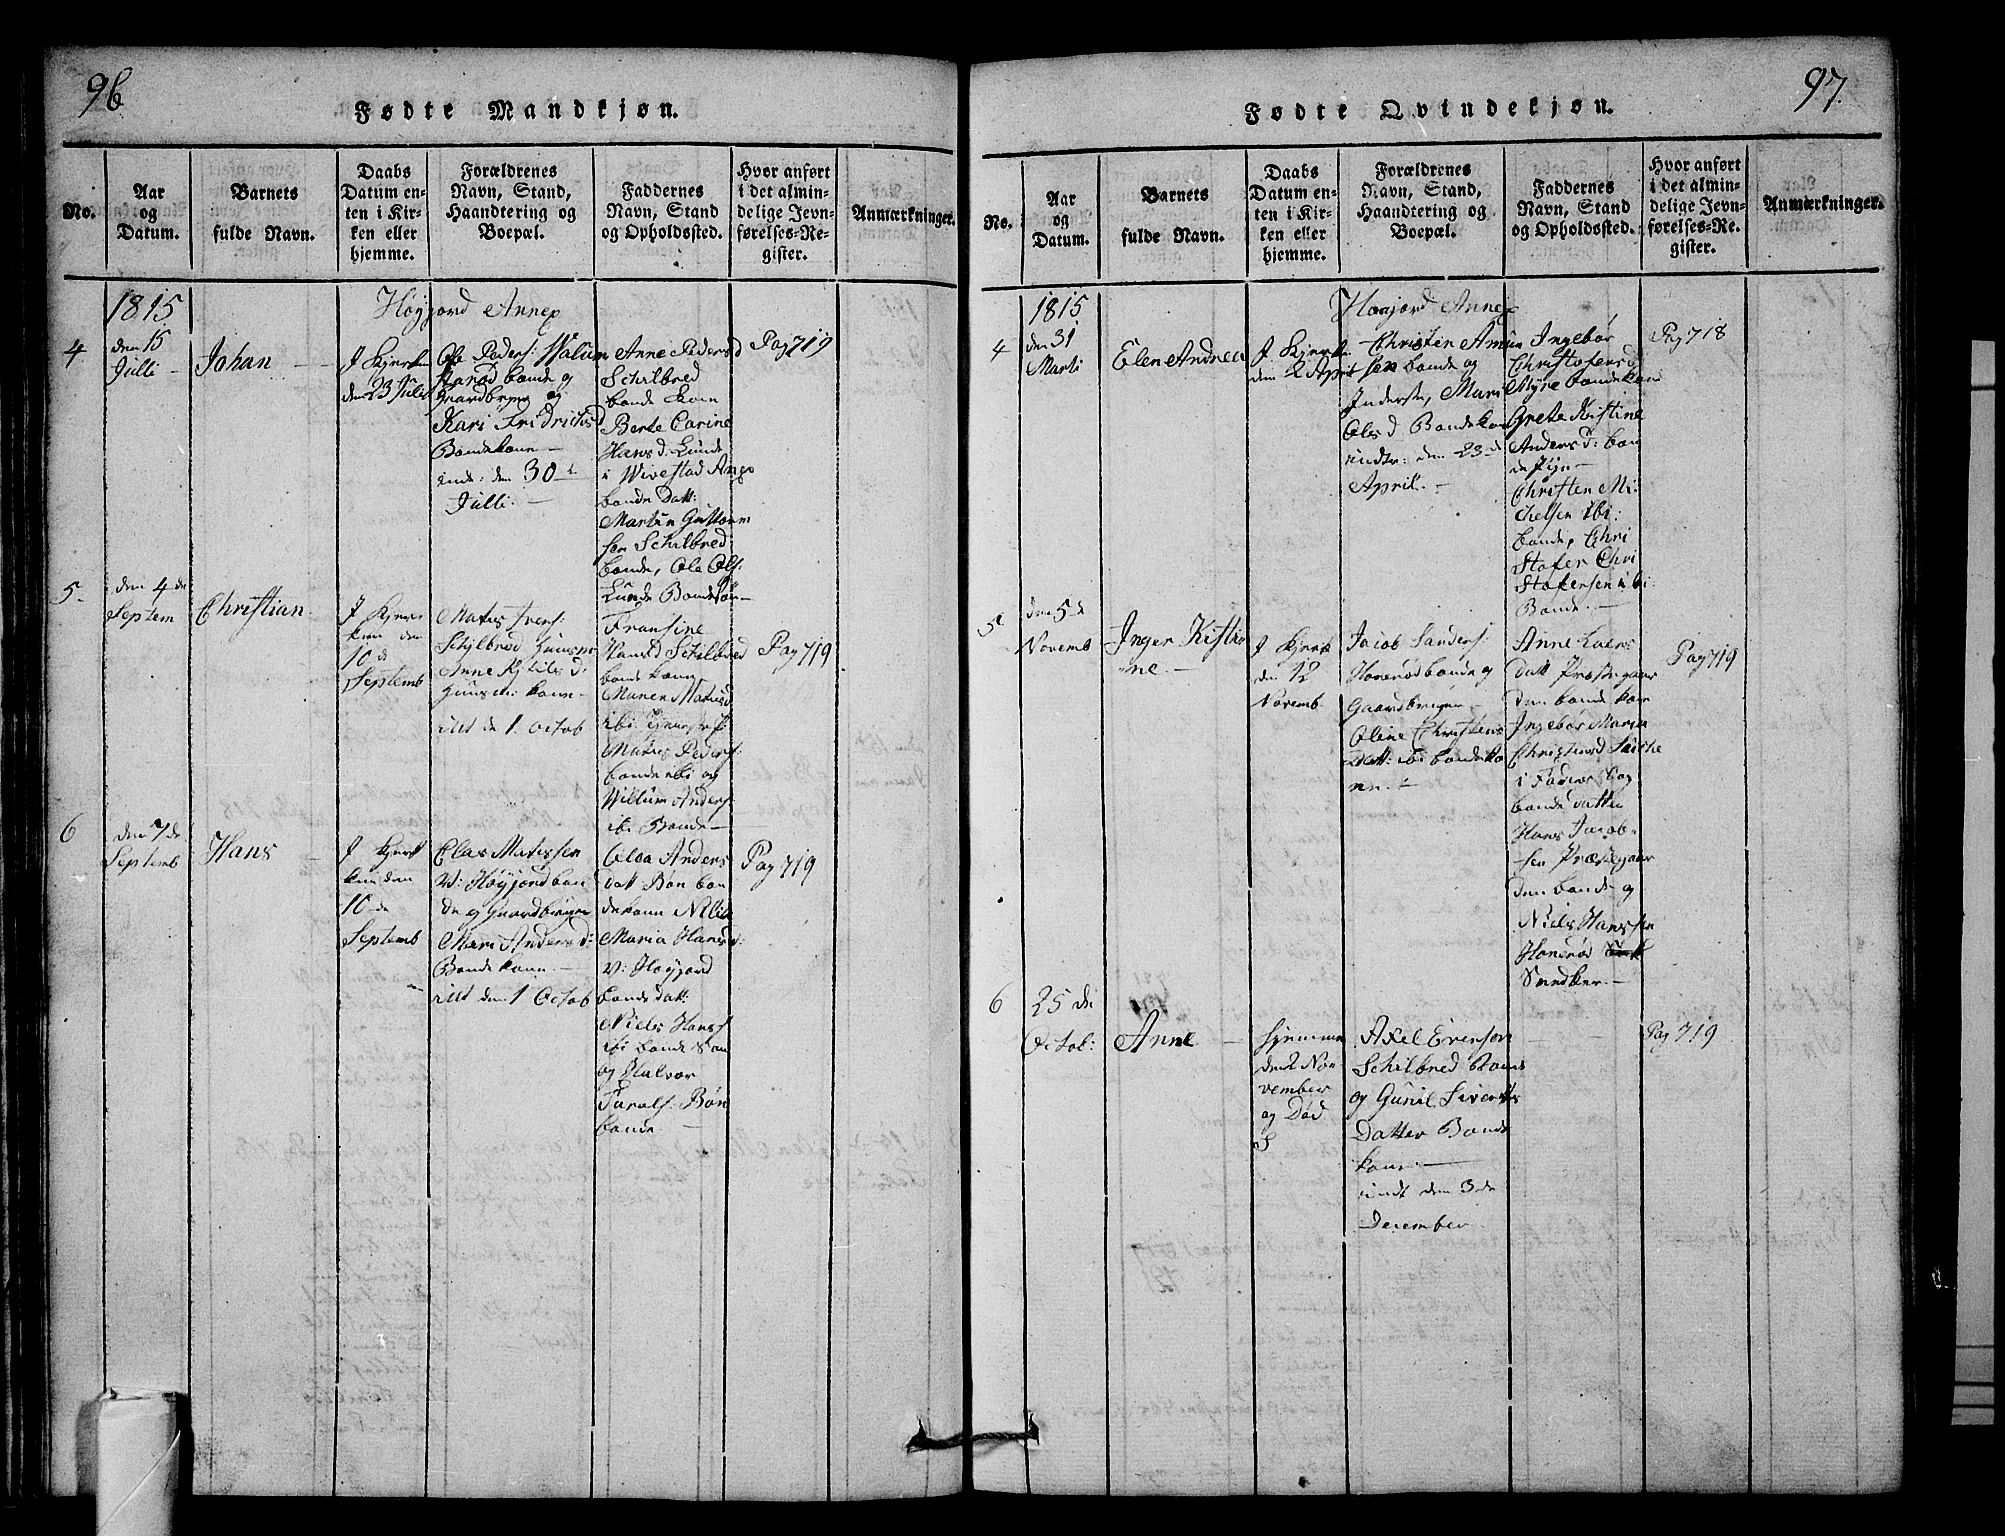 96
Fødte Mandkjøn.
No.
Aar
og
Datum.
Barnets
fulde Navn.
Daabs
Datum en-
ten i Kir-
ken eller
hjemme.
Forældrenes
Navn, Stand,
Haandtering og
Boepæl.
Faddernes
Navn, Stand
og Opholdssted.
Hvor anført
i det almin-
delige Jevn-
førelses-Re-
gister.
Anmærkninger.
1815
Høyjord Annex
4
den 15
Julli
Johan
J Kjerken
den 23 Juli
Ole Peders: Walum
Aarød bonde og
Gaardbryger og
Kari Fridrichsd
Bondekone
indt: den 30
Julli.
Anne Pedersd
Schilbred
bonde kone
Berte Carine
Hansd. Lunde
i Wivestad Anex
bonde Datt:
Martin Guttorm
sen Schilbred
bonde, Ole Ols:
Lunde Bondesøn
Pag 719
5
den 4 de
Septem
Christian
J Kjer
ken den
10 d
Septemb
Matis Ivers:
Schilbred Huusm
Anne Kjiilsd:
Huusm: kone
itd de 1 octob
Fransine
Hansd Schilbred
bonde kone
Maren Matisd
ibi
Matis Peders:
bonde ibi og
Willum Anders:
ibi Bonde
Pag 719
6
den 7 de
Septemb
Hans
J Kjerk
ken den
10 de
Septemb
Clas Matissen
W: Høyjord bon
de og Gaardbryger
Mari Andersd:
Bonde kone
itd den 1 Octob
Olea Anders
datt Bøn bon
dekone
Maria Hansd:
W: Høyjord
bonde datt:
Niels Hans
ibi bonde søn
og Halvor
Taralf: Bøn
bonde
Pag 719
97.
Fødte Qvindekjøn.
No.
Aar
og
Datum.
Barnets
fulde Navn.
Daabs
Datum en-
ten i Kir-
ken eller
hjemme.
Forældrenes
Navn, Stand,
Haandtering og
Boepæl.
Faddernes
Navn, Stand
og Opholdssted.
Hvor anført
i det almin-
delige Jevn-
førelses-Re-
gister.
Anmærkninger.
1815
Høijord Annex
4
den 31
Marti
Elen Andrea
J Kjerk
dem 2 April
Christen Amun
sen bonde og
Inderste, Mari
Olsd Bondekon
indtr: den 23 d
April.
Ingebør
Christofersd
Myre bondekone
Grete Kistine
Andersd: bon
de
Christen Mi
chelsen ibi:
bonde, Chri
stofer Chri
stofersen ibi:
Bonde.
Pag 718
5
den 5 d
Novemb
Inger Kistin
ne.
J Kjerk
den 12
Novemb
Jacob Sanders:
Honerød bonde og
Gaardbryger
Oline Christens
Datt: ibi bondeko
ne.
Anne Laers
datt Præstegaar
den bonde kone
Ingebør Maria
Christensd
i
bonde datter
Hans Jacob-
sen Præstegaar
den bonde og
Niels Hanssen
Honerød
Snedker.
Pag 719
6
25 de
Octob:
Anne
hjemme
den 2 No
vember
og Død
Axel Evensen
Schilbred
og Gunil Sivers
Datter Bonde
kone.
indt dem 3 de
December.
Pag 719